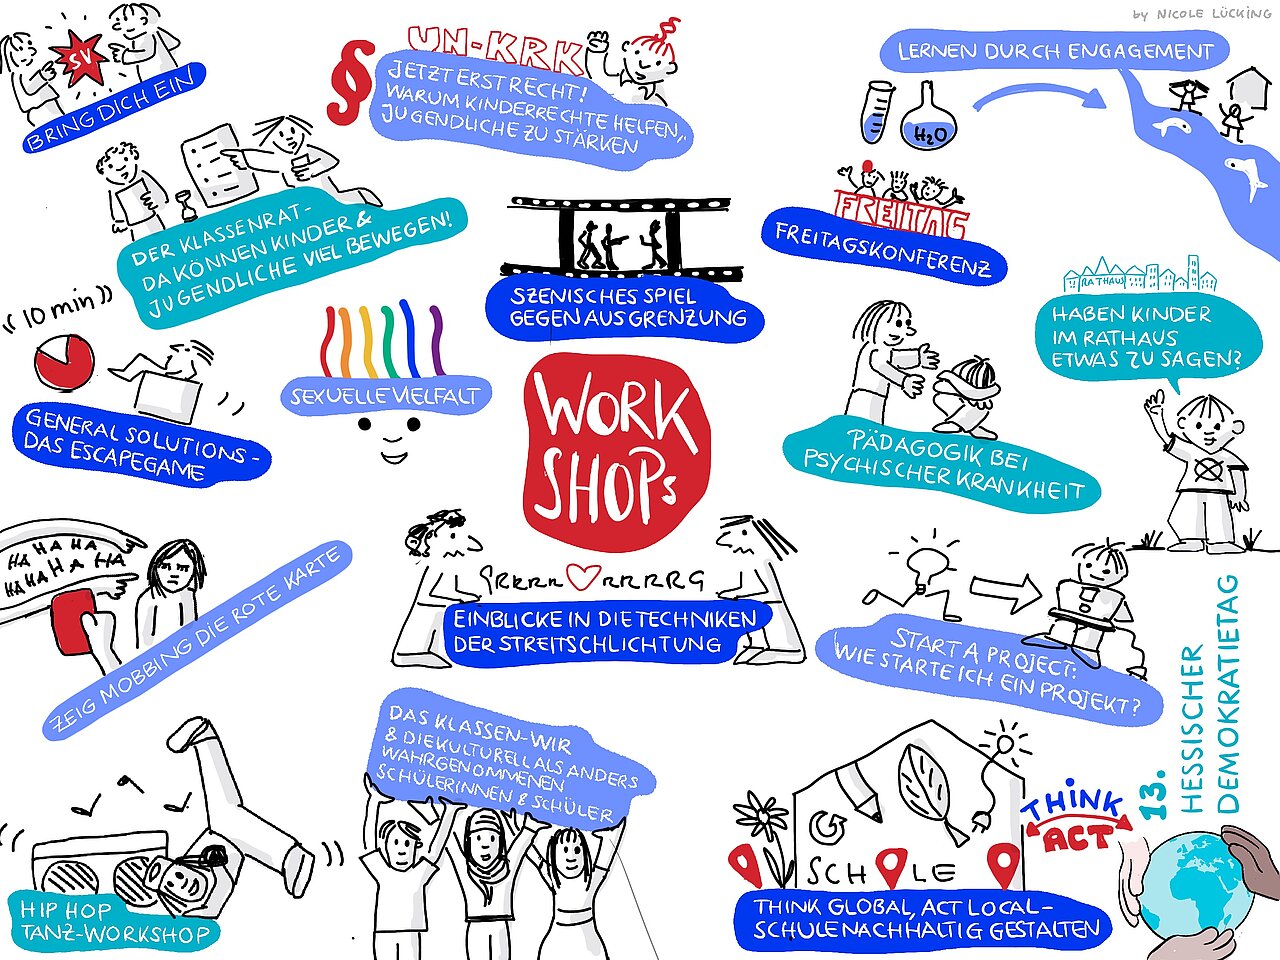 by NICOLE LÜCKING
SV
BRING DICH EIN
UN-KRK
§
JETZT ERST RECHT!
WARUM KINDERRECHTE HELFEN,
JUGENDLICHE ZU STÄRKEN
LERNEN DURCH ENGAGEMENT
H2O
DER KLASSENRAT-
DA KÖNNEN KINDER &
JUGENDLICHE VIEL BEWEGEN!
SZENISCHES SPIEL
GEGEN AUSGRENZUNG
FREITAG
FREITAGSKONFERENZ
RATHAUS
HABEN KINDER
IM RATHAUS
ETWAS ZU SAGEN?
10 min
GENERAL SOLUTIONS-
DAS ESCAPEGAME
SEXUELLE VIELFALT
WORK
SHOPs
PÄDAGOGIK BEI
PSYCHISCHER KRANKHEIT
HA HA HA
HA HA HA HA
HA HA HA HA
ZEIG MOBBING DIE ROTE KARTE
GRRRRR RRRRRG
EINBLICKE IN DIE TECHNIKEN
DER STREITSCHLICHTUNG
START A PROJECT:
WIE STARTE ICH EIN PROJEKT?
13.
HESSISCHER
DEMOKRATIETAG
HIP HOP
TANZ-WORKSHOP
DAS KLASSEN-WIR
& DIE KULTURELL ALS ANDERS
WAHRGENOMMENEN
SCHÜLERINNEN & SCHÜLER
SCHULE
THINK
ACT
THINK GLOBAL, ACT LOCAL-
SCHULE NACHHALTIG GESTALTEN